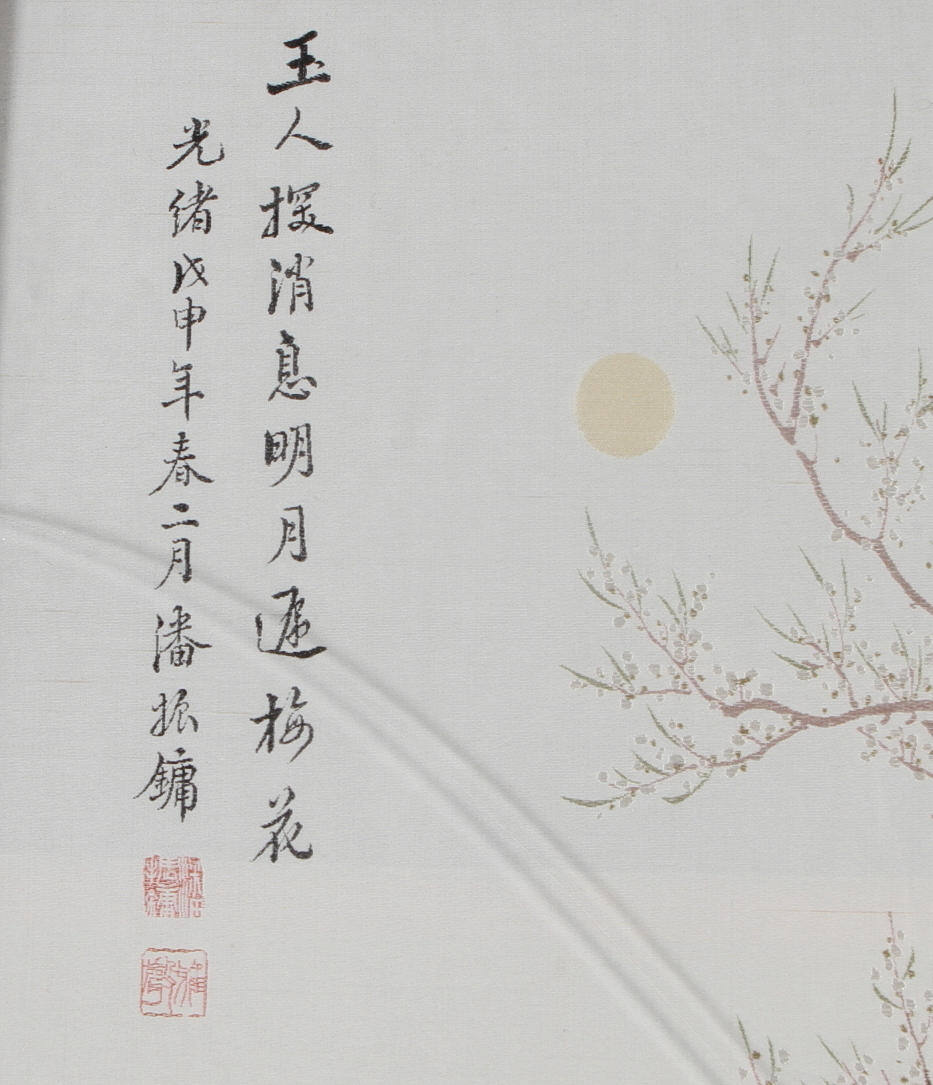 玉人探消息明月遞梅花
光緒戊申年春二月潘振鏞